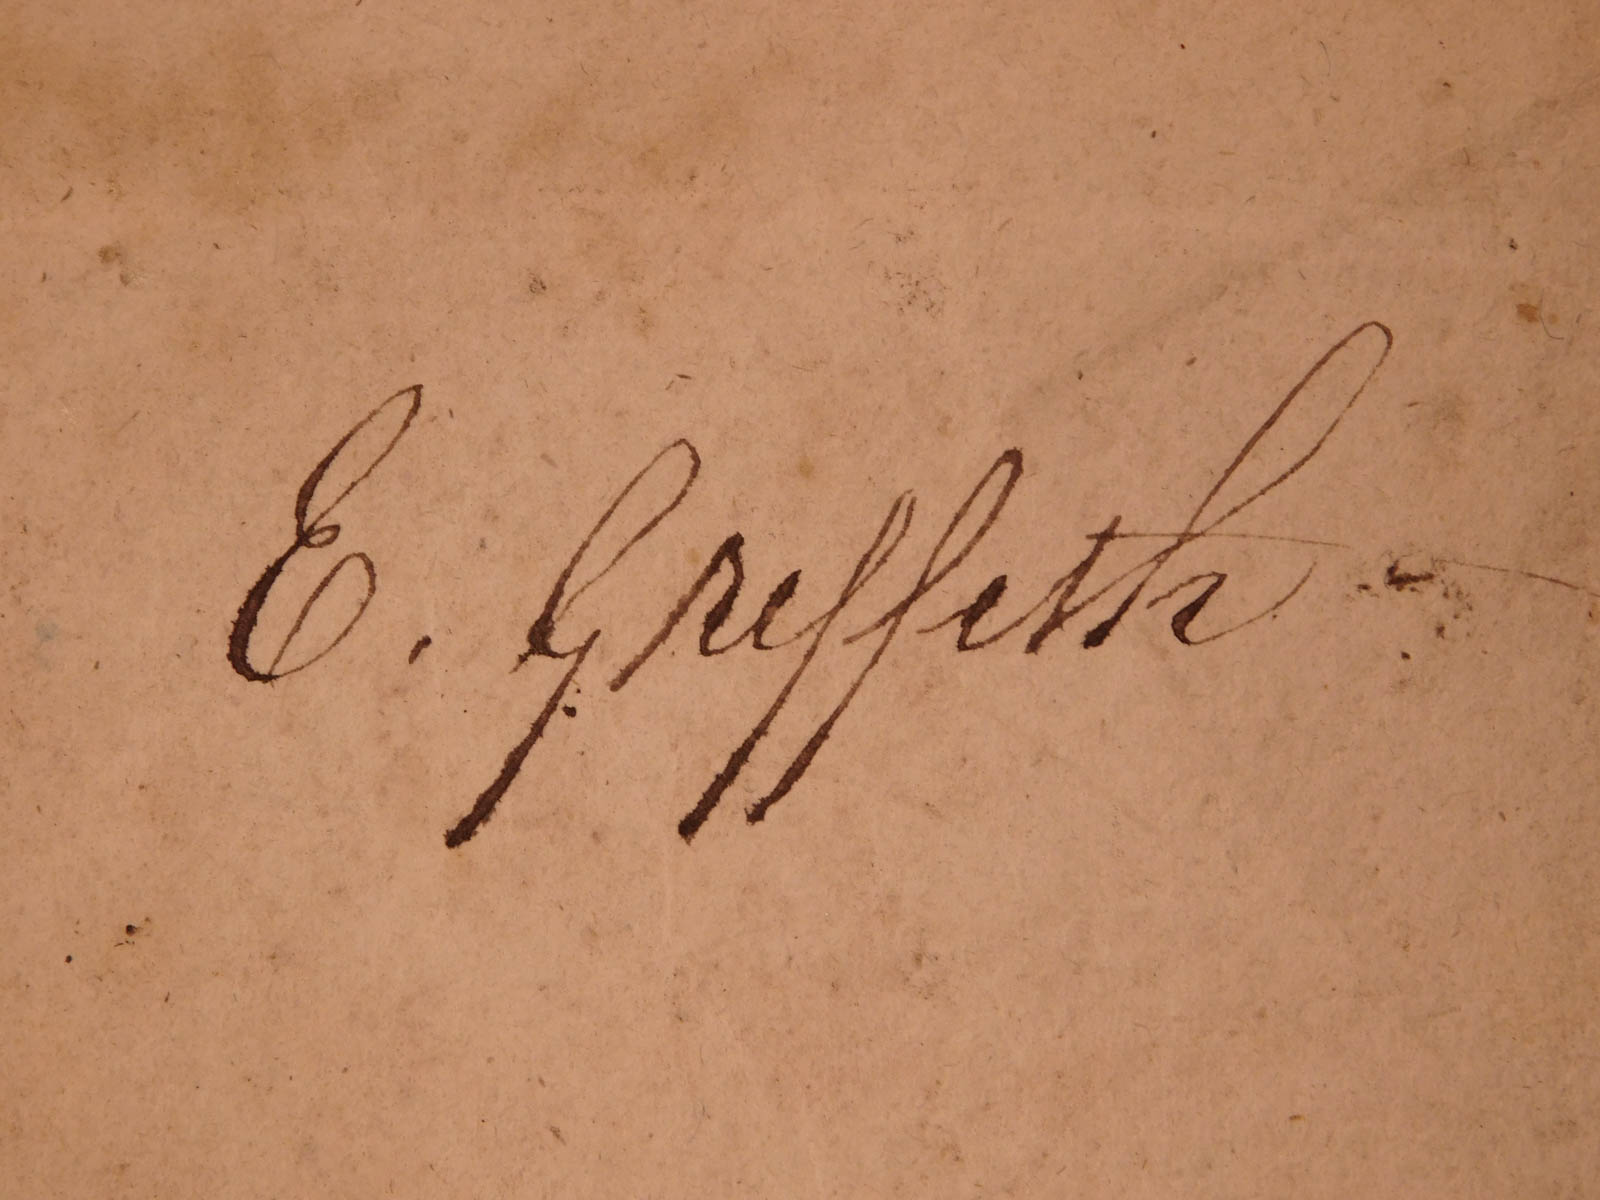 E. Griffith